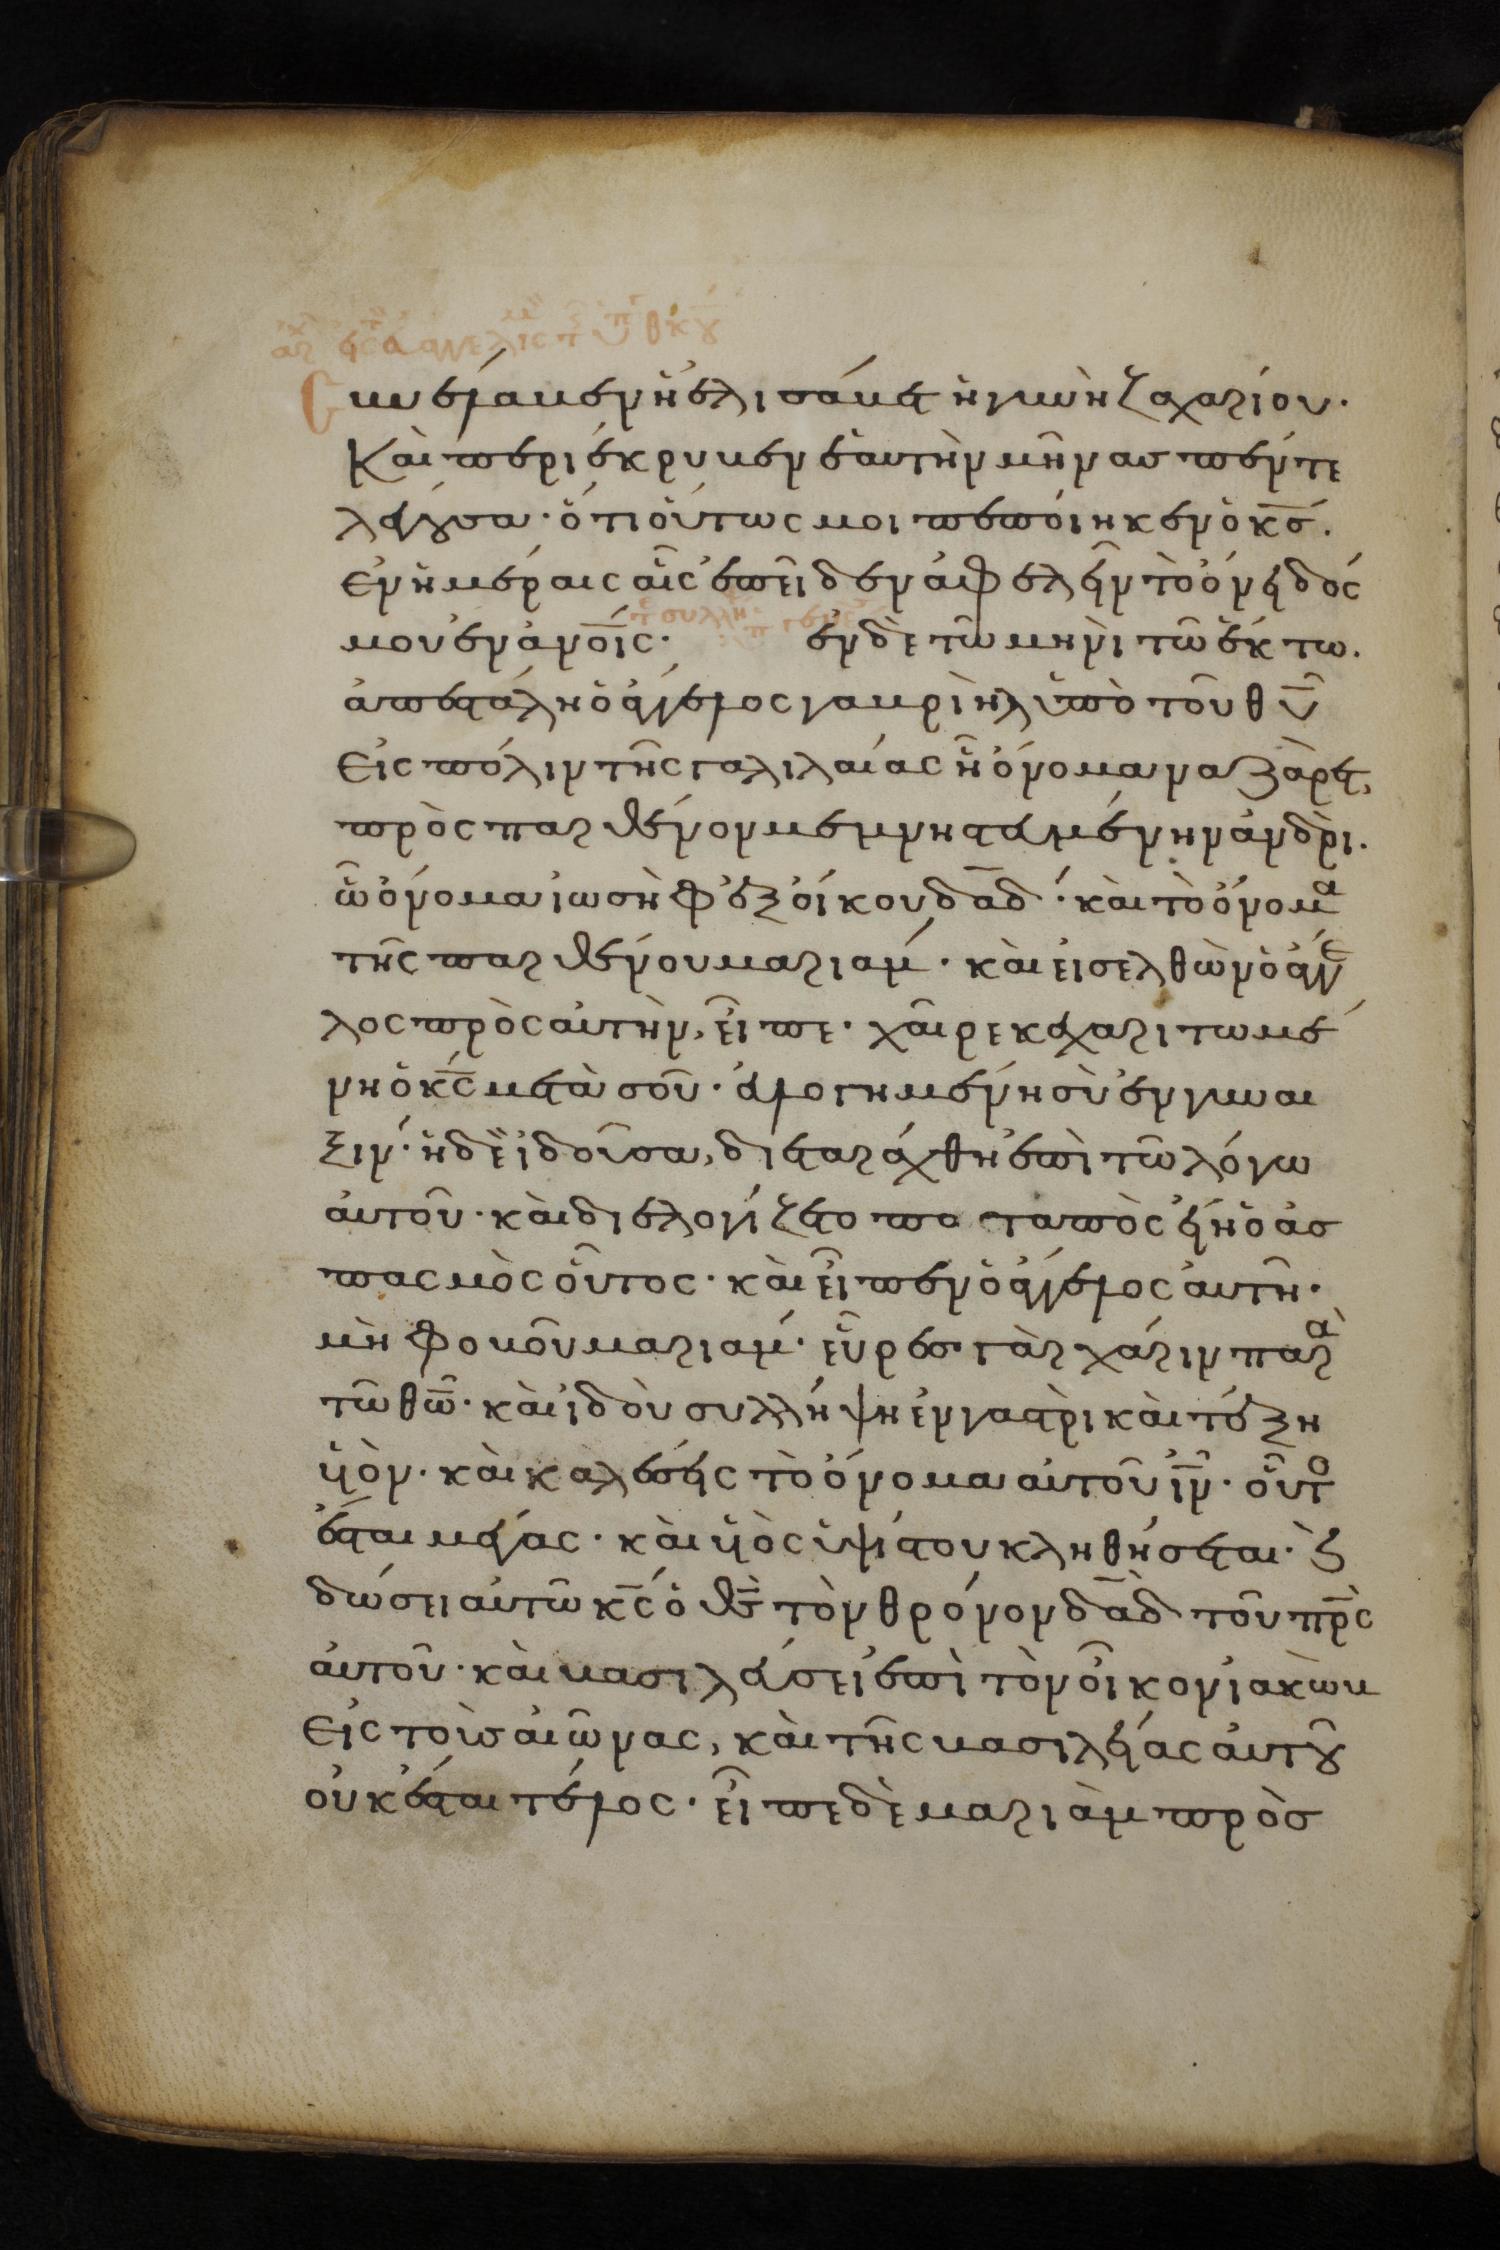 συνέλαβεν ἡ ἐλισάβετ ἡ γυνὴ ζαχαρίου·
Καὶ περιέκρυβεν ἑαυτὴν μῆνας πέντε
λέγουσα· ὅτι οὕτως μοι πεποίηκεν ὁ κ̅ς̅.
ἐν ἡμέραις αἷς ἐπεῖδεν ἀφελεῖν τὸ ὄνειδός
μου ἐν ἀνο̅ι̅ς· ἐν δὲ τῶ μηνὶ τῶ ἕκτω.
ἀπεστάλη ὁ ἄγγελος γαβριὴλ ὑπὸ τοῦ θ̅υ̅
εἰς πόλιν τῆς γαλιλαίας ἧ ὄνομα ναζαρὲτ,
πρὸς παρθένον μεμνηστευμένην ἀνδρὶ.
ὧ ὄνομα ἰωσὴφ ἐξ οἴκου δ̅α̅δ̅· καὶ τὸ ὄνομα
τῆς παρθένου μαριάμ· καὶ εἰσελθὼν ὁ ἄγγε
λος πρὸς αὐτὴν, εἶπε· χαῖρε κεχαριτωμέ
νη ὁ κ̅ς̅ μετὰ σοῦ· εὐλογημένη σὺ ἐν γυναι
ξίν· ἡ δὲ ἰδοῦσα, διεταράχθη ἐπὶ τῶ λόγω
αὐτοῦ· καὶ διελογίζετο ποταπὸς εἴη ὁ ἀσ
πασμὸς οὗτος· καὶ εἶπεν ὁ ἄγγελος αὐτῆ·
μὴ φοβοῦ μαριάμ· εὗρες γὰρ χάριν παρὰ
τῶ θ̅ω̅· καὶ ἰδοὺ συλλήψη ἐν γαστρὶ καὶ τέξη
υἱὸν· καὶ καλέσεις τὸ ὄνομα αὐτοῦ ι̅ν̅· οὗτος
ἔσται μέγας· καὶ υἱὸς ὑψίστου κληθήσεται· καὶ
δώσει αὐτῶ κ̅ς̅ ὁ θ̅ς̅ τὸν θρόνον δ̅α̅δ̅ τοῦ π̅ρ̅ς
αὐτοῦ· καὶ βασιλεύσει ἐπὶ τὸν οἶκον ἰακὼβ
εἰς τοὺς αἰῶνας, καὶ τῆς βασιλείας αὐτοῦ
οὐκ ἔσται τέλος· εἶπε δὲ μαριὰμ πρὸς